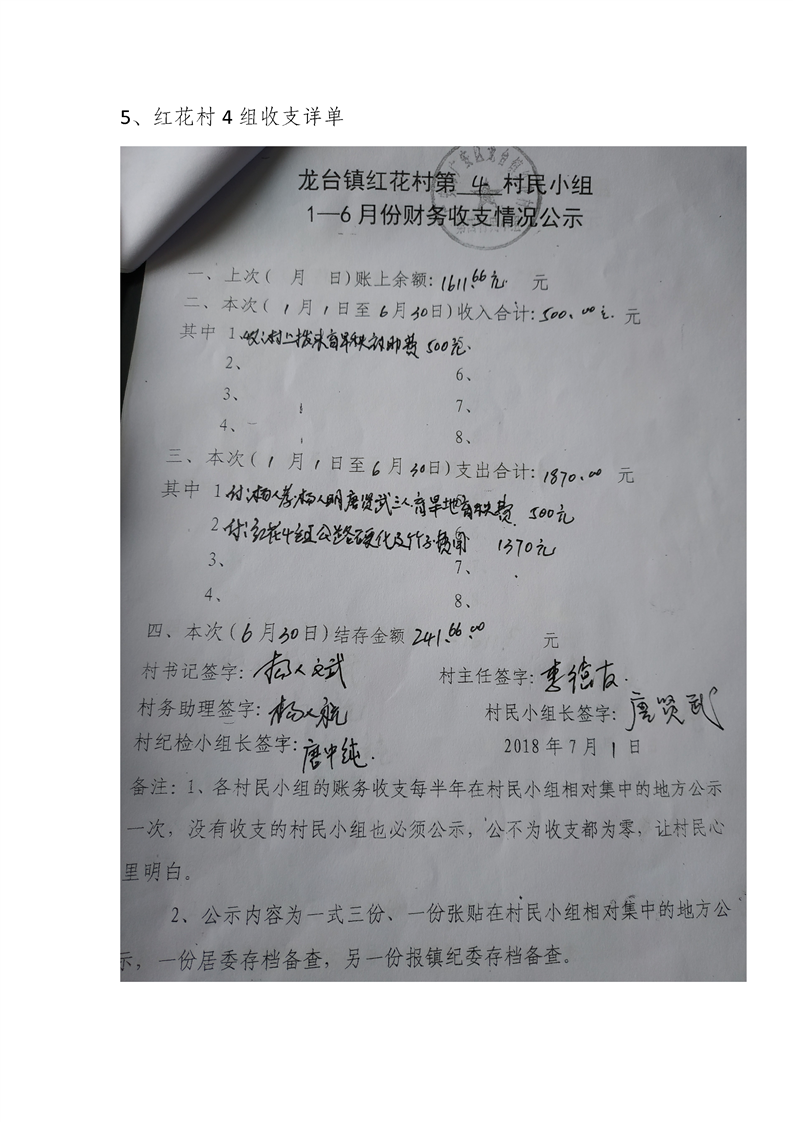 5、红花村4组收支详单
龙台镇红花村第 4 村民小组
1—6月份财务收支情况公示
一、上次( 月 日)账上余额:1611.66元 元
二、本次(1月1日至6月30日)收入合计:500.00元. 元
其中 1、收:村上拨来育旱秧补助费 500元.
2、
6、
3、
7、
4、
8、
三、本次(1月1日至6月30日)支出合计:1870.00 元
其中 1付:杨人孝杨人明唐贤武三人育旱地育秧费 500元
2付:红花4组公路硬化及竹子 1370元
3、
7、
4、
8、
四、本次(6月30日)结存金额 241.66.00 元
村书记签字:杨人文武 村主任签字:李德友.
村务助理签字:杨人航 村民小组长签字:唐贤武
村纪检小组长签字:唐中纯. 2018年7月1日
备注:1、各村民小组的账务收支每半年在村民小组相对集中的地方公示
一次,没有收支的村民小组也必须公示,公不为收支都为零,让村民心
里明白。
2、公示内容为一式三份、一份张贴在村民小组相对集中的地方公
示,一份居委存档备查,另一份报镇纪委存档备查。